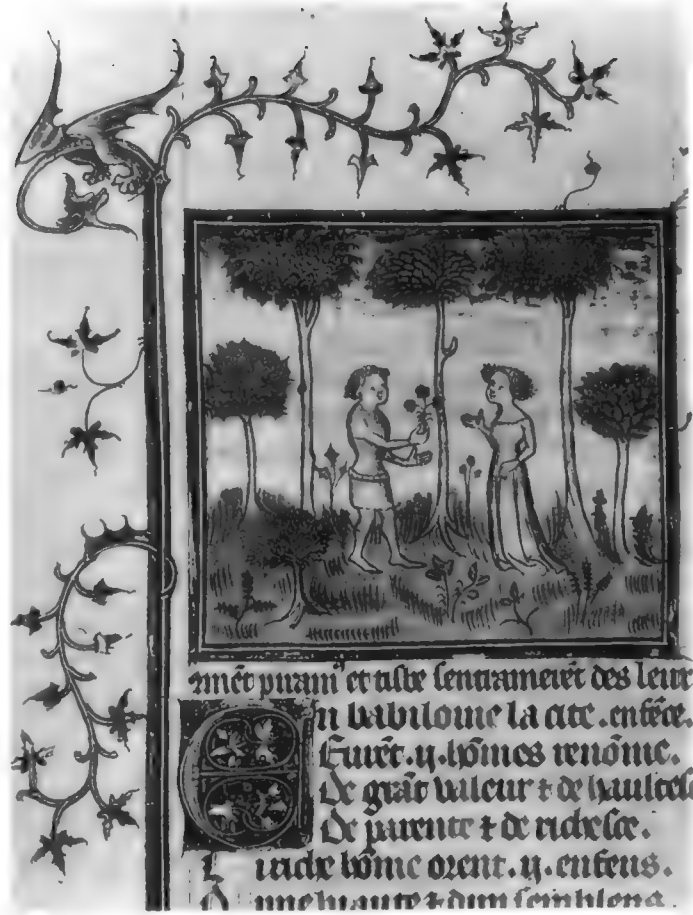 piram9 et tisbe sentramerēt des leur
En babiloine la cite. enfēce.
Furēt .ij. hōmes renōme.
De grāt valeur ⁊ de haultesc
De parente ⁊ de richesce.
L i riche hōme orent .ij. enfens.
D une biaute ⁊ dun semblens.